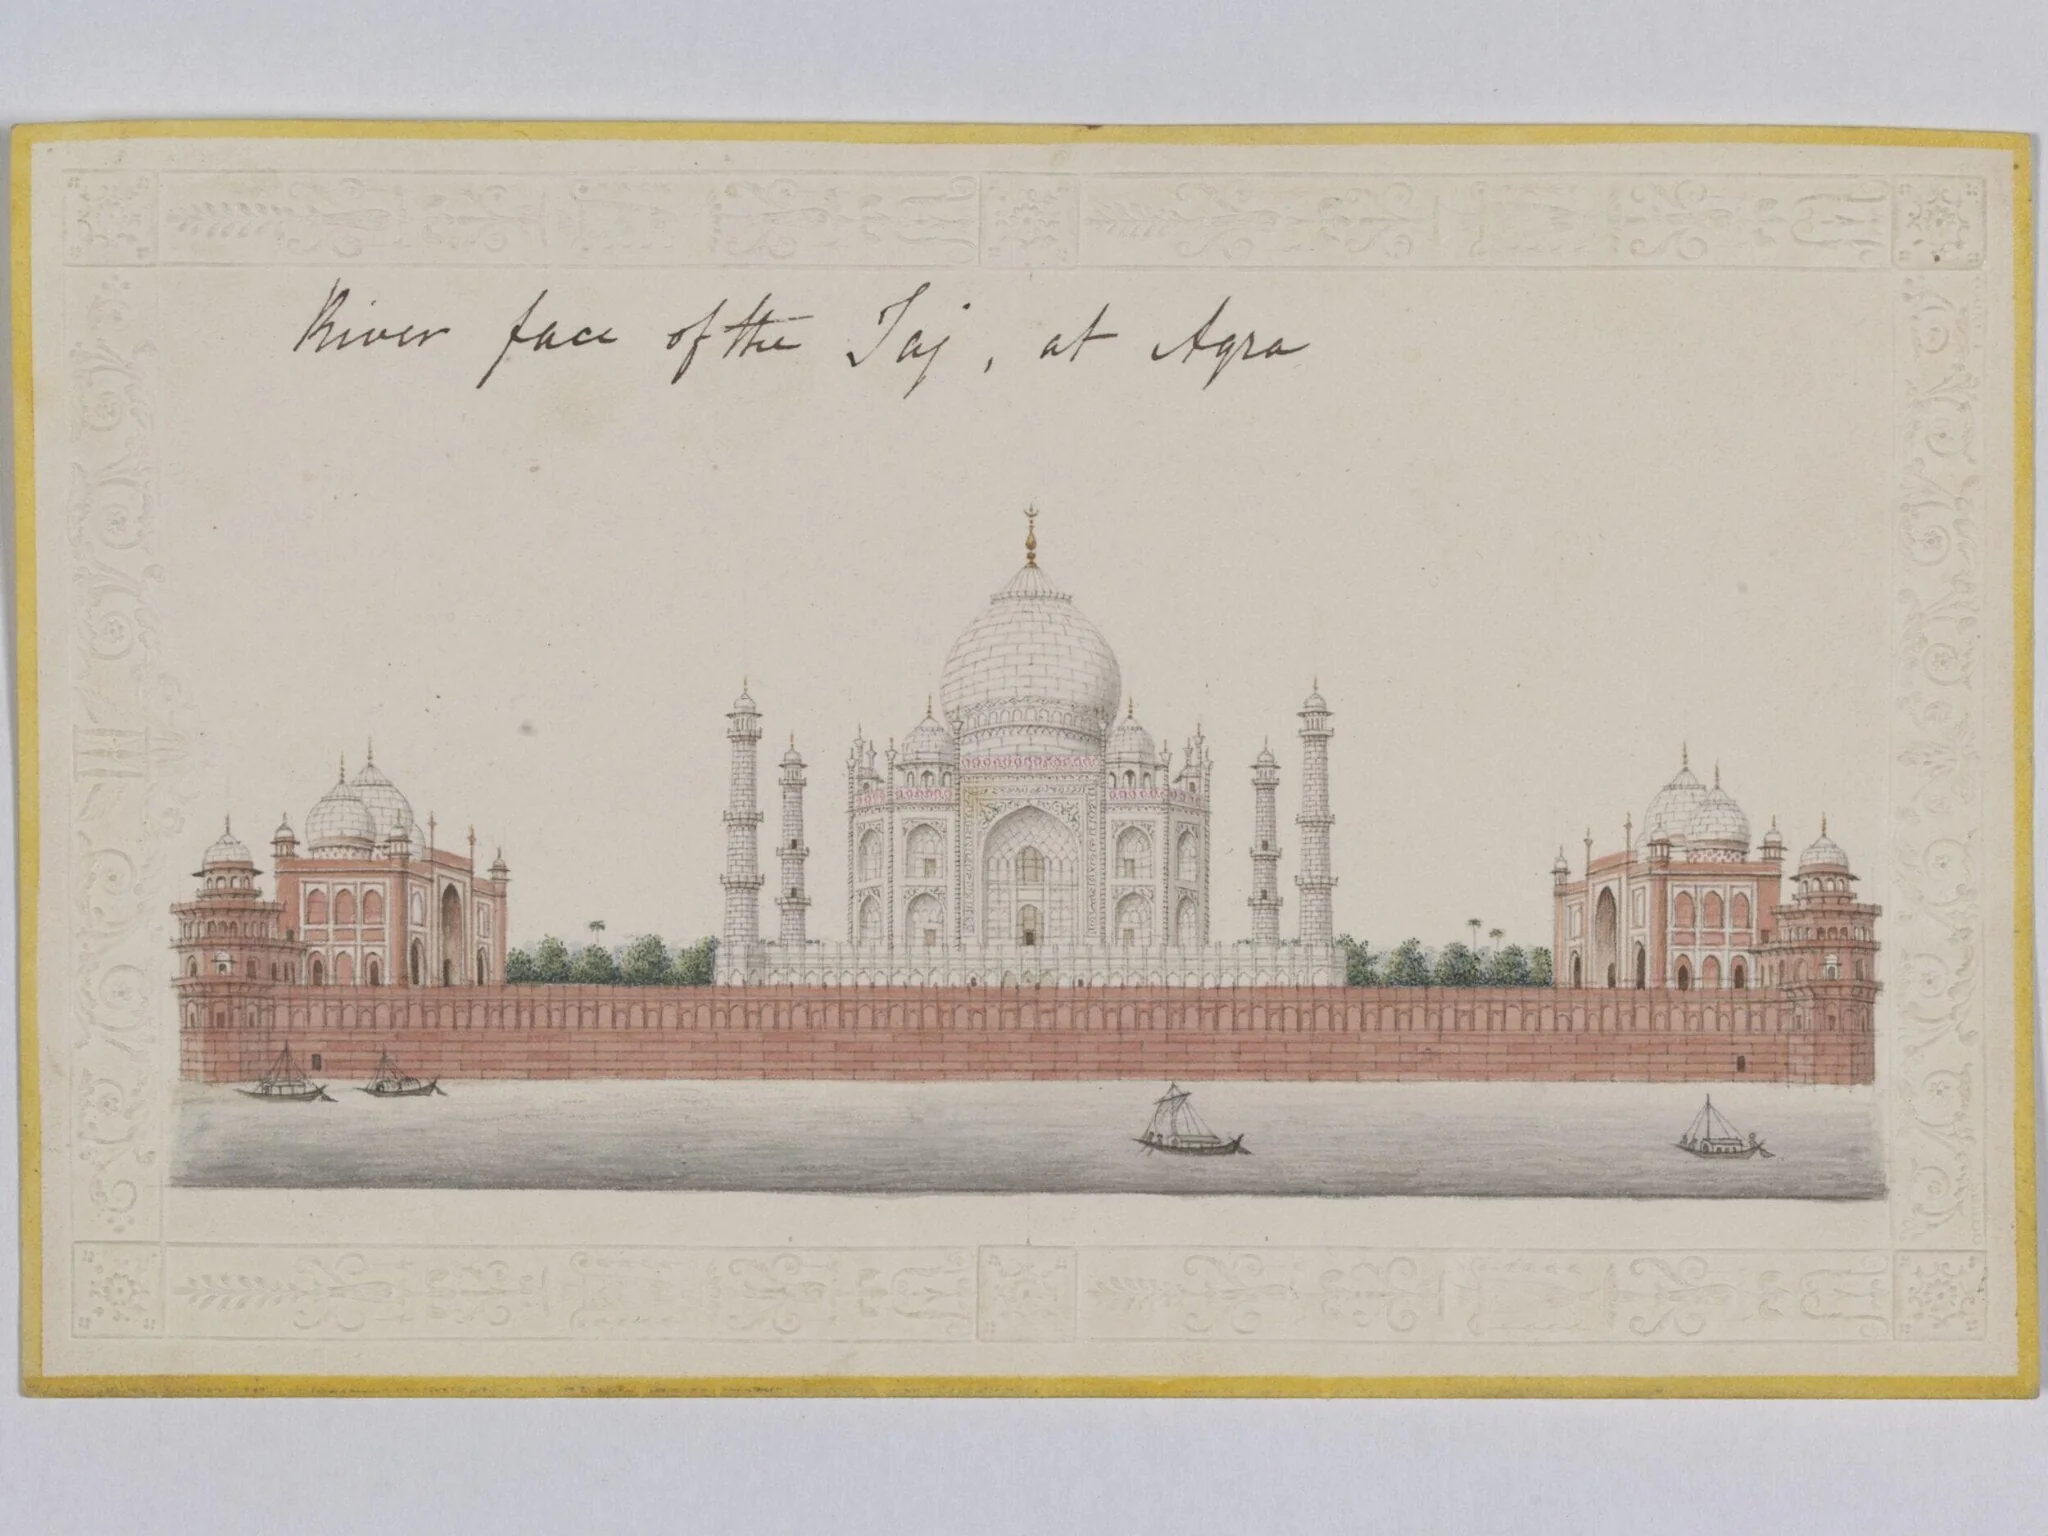 River face of the Taj, at Agra